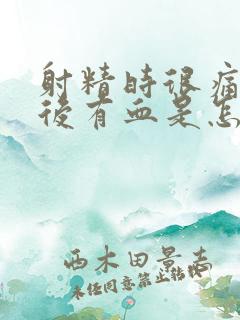 射精時很痛
後有血是怎
西木田景志
未经同意禁止转